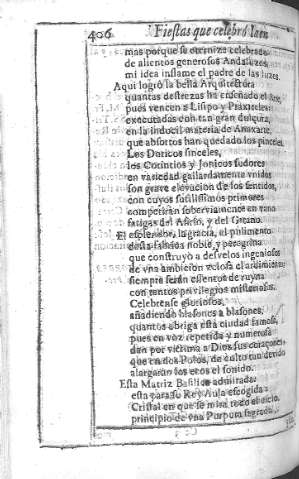 406 Fiestas que celebró Iaen
mas porque se eternize celebrado
de alientos generosos Andaluzes,
mi idea inflame el padre de las luzes.
Aqui logrò la bella Arquitectura
quantas destrezas ha enseñado el Arte,
pues vencen a Lisipo y Praxiteles
executadas con tan gran dulçura,
en la indocil materia de
que absortos han quedado los pinceles.
Los Doricos sinceles,
los Corintios y Jonicos sudores
en variedad gallardamente vnidos
son grave elevacion de los sentidos,
con cuyos sutilissimos primores
competiràn soberviamente en vano
fatigas del Asirio, y del Gitano.
El esplendor, la gracia, el pulimento
desta fabrica noble, y peregrina
que construyo a desvelos ingeniosos
de vna ambicion velosa el ardimiento,
siempre seràn essentos de ruyna
con tantos privilegios misteriosos.
Celebrense gloriosos,
añadiendo blasones a blasones,
quantos abriga esta ciudad famosa,
pues en voz repetida y numerosa
dan por victima a Dios sus coraçones,
que en dos Polos, de culto tan devido
alargaràn los ecos el sonido.
Esta Matriz Basilica admirada,
esta para so Rey Aula escogida
Cristal en que se mira todo el cielo,
principio de vna Purpura sagrada